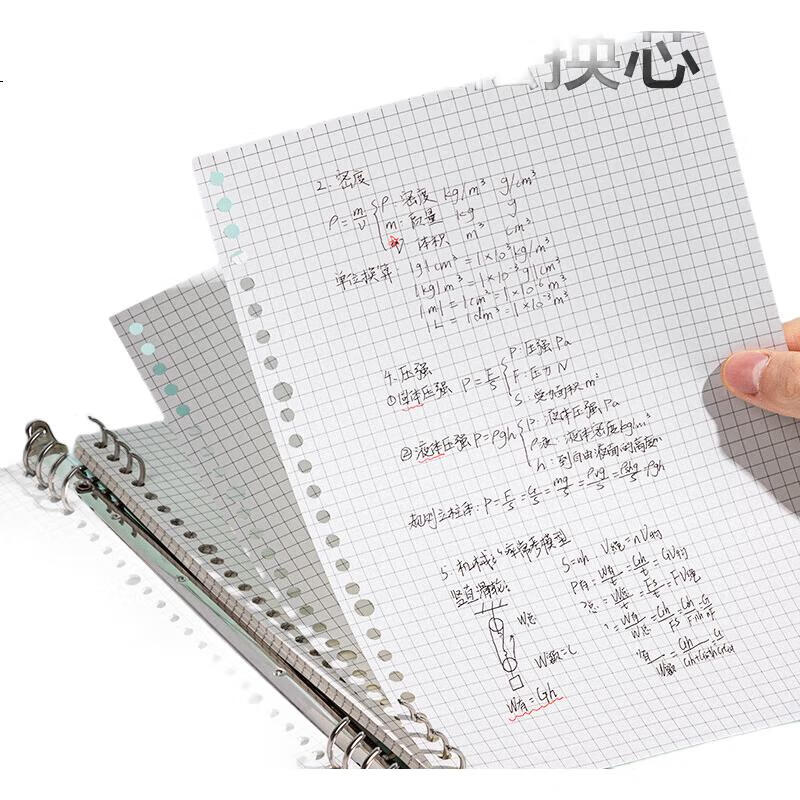 换芯
2.密度
ρ=m/v { ρ:密度 kg/m³ g/cm³
m:质量 kg g
v 体积 m³ cm³
单位换算: 1g/cm³=1×10³kg/m³
1kg/m³=1×10⁻³g/cm³
1ml=1cm³=1×10⁻⁶m³
1L=1dm³=1×10⁻³m³
4.压强
①固体压强 P=F/S { P:压强 Pa
F:压力 N
S:受力面积 m²
②液体压强 P=ρgh { P:液体压强 Pa
ρ液:液体密度 kg/m³
h:到自由液面的高度
规则立柱体:P=F/S=G/S=mg/S=ρvg/S=ρShg/S=ρgh
5.机械 常考模型
竖直滑轮:
S=nh V绳=nV物
P有=W有/t=Gh/t=GV物
P总=W总/t=FS/t=FV绳
W总
=W有/W总=Gh/FS=Gh/Fnh=G/nF
W额=
W有=Gh